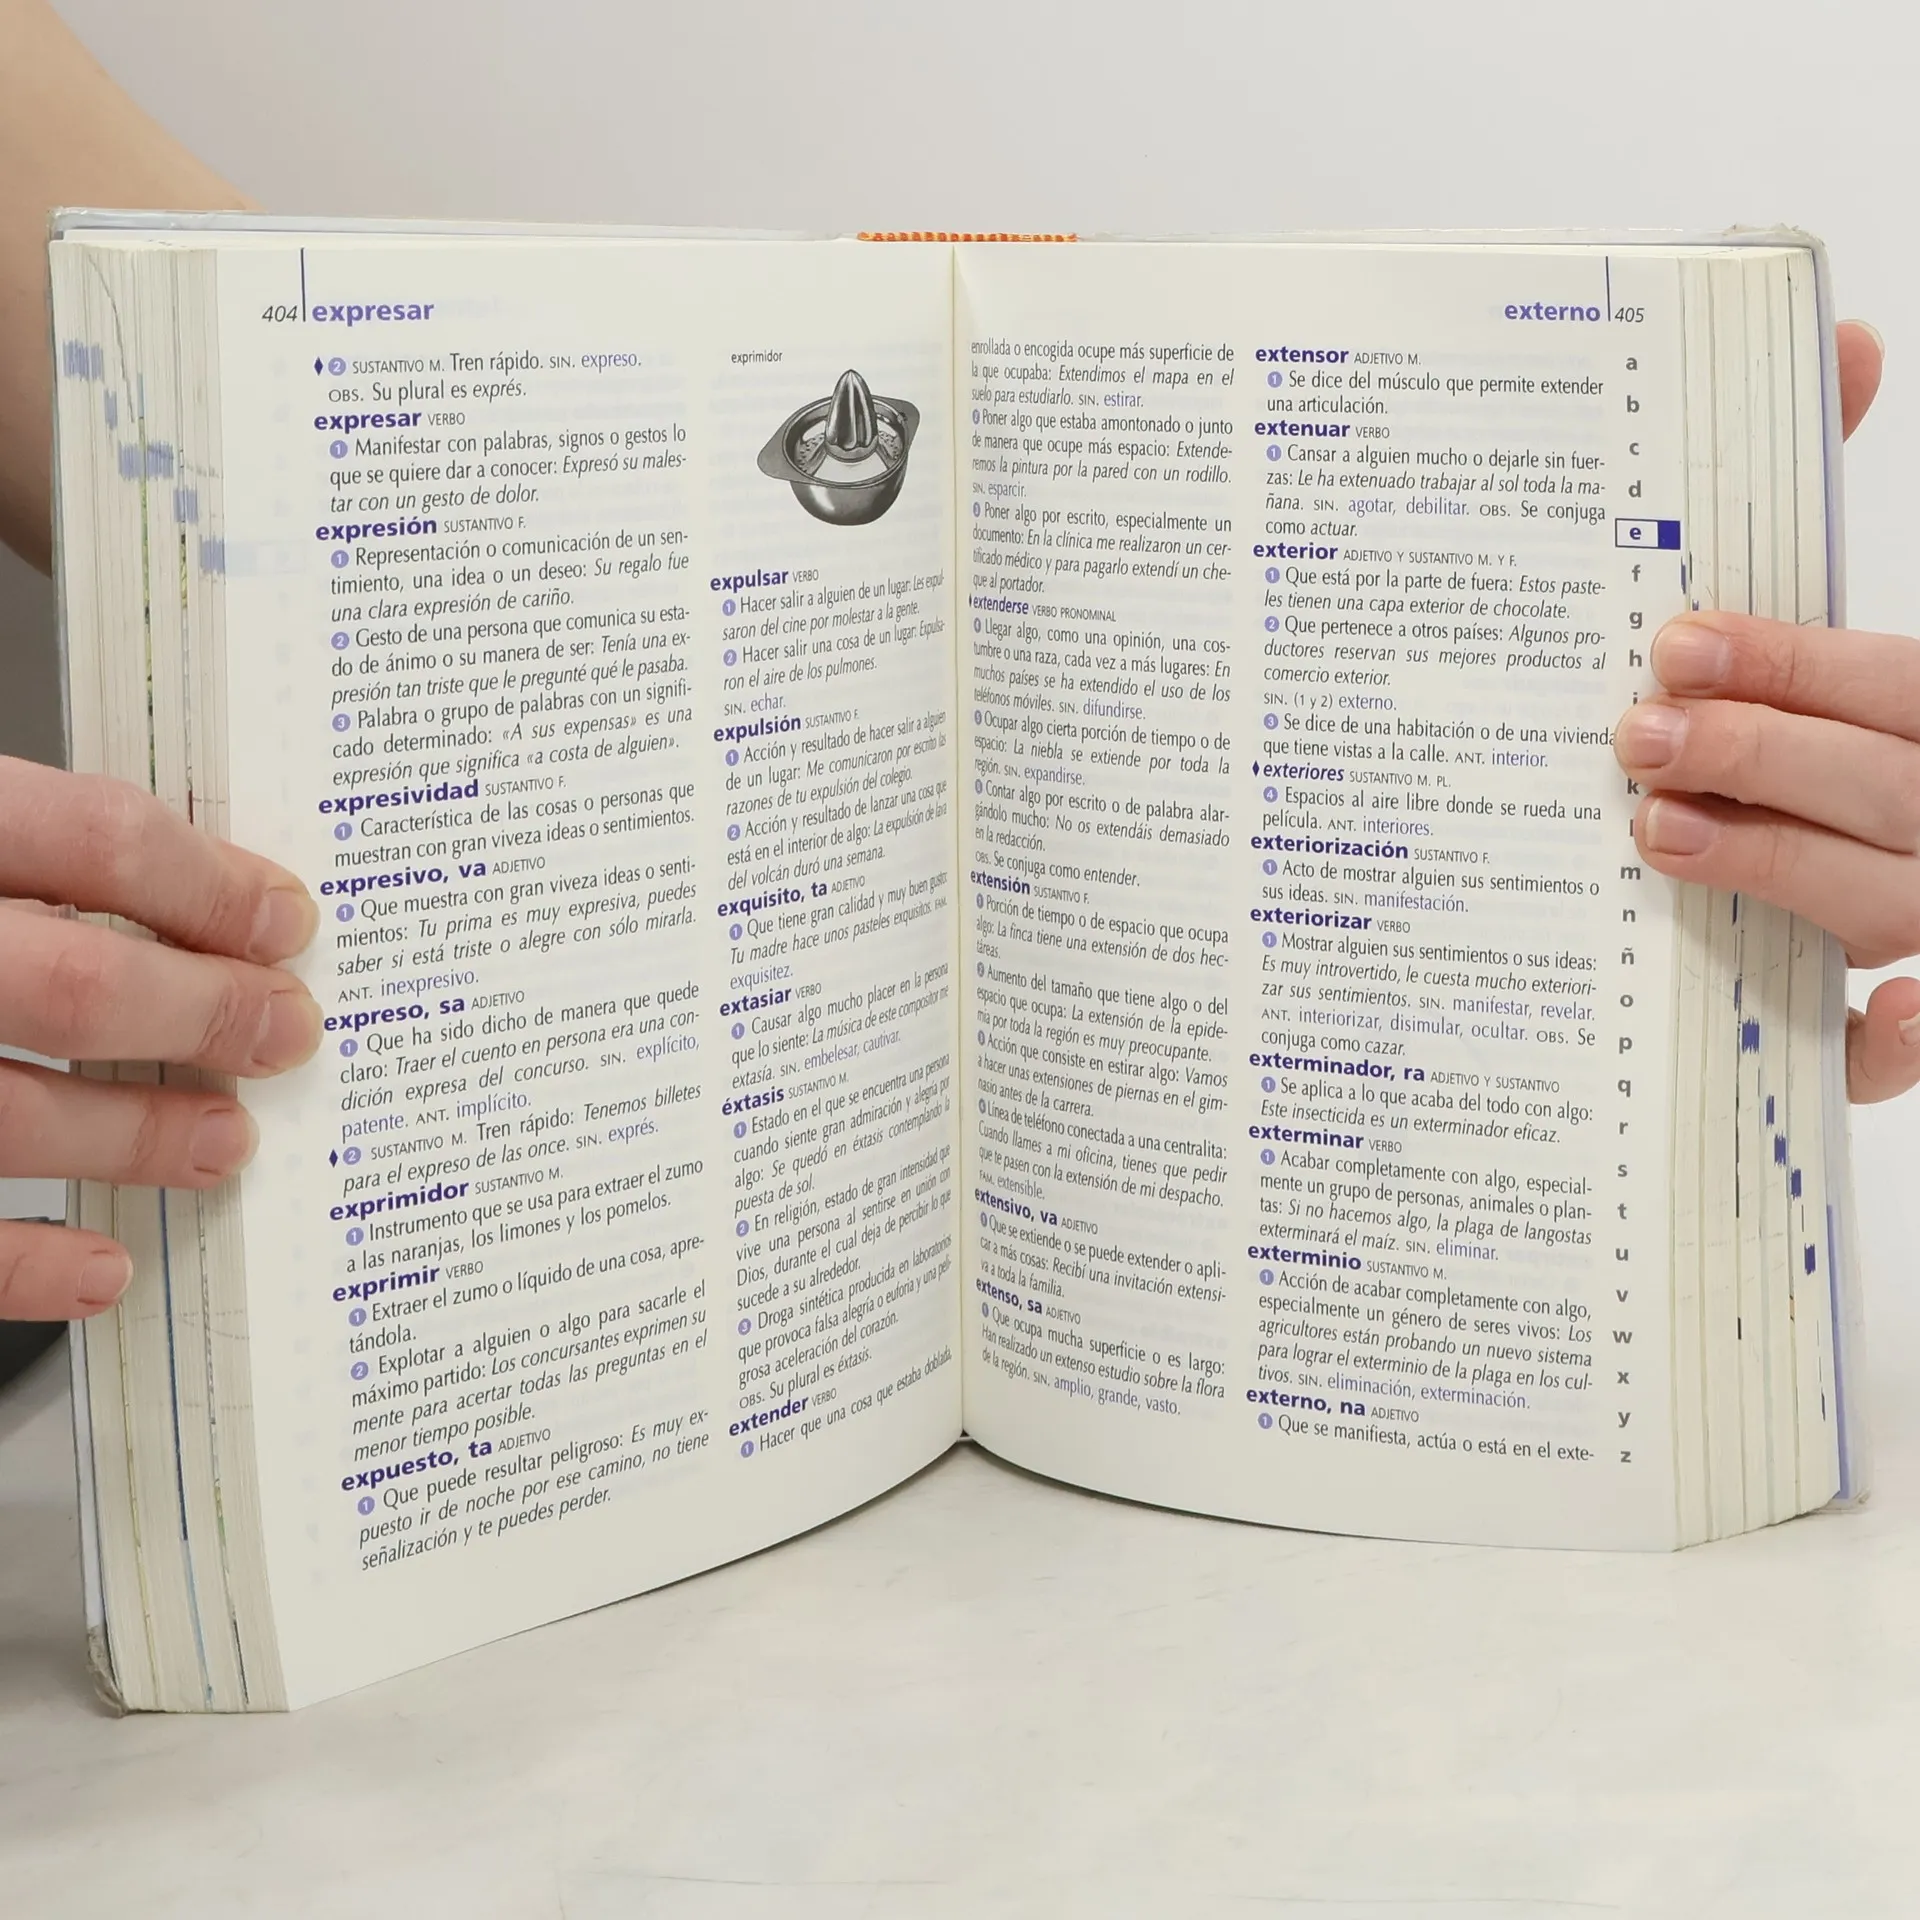 404 expresar
♦ 2 SUSTANTIVO M. Tren rápido. SIN. expreso.
OBS. Su plural es exprés.
expresar VERBO
1 Manifestar con palabras, signos o gestos lo
que se quiere dar a conocer: Expresó su males-
tar con un gesto de dolor.
expresión SUSTANTIVO F.
1 Representación o comunicación de un sen-
timiento, una idea o un deseo: Su regalo fue
una clara expresión de cariño.
2 Gesto de una persona que comunica su esta-
do de ánimo o su manera de ser: Tenía una ex-
presión tan triste que le pregunté qué le pasaba.
3 Palabra o grupo de palabras con un signifi-
cado determinado: «A sus expensas» es una
expresión que significa «a costa de alguien».
expresividad SUSTANTIVO F.
1 Característica de las cosas o personas que
muestran con gran viveza ideas o sentimientos.
expresivo, va ADJETIVO
1 Que muestra con gran viveza ideas o senti-
mientos: Tu prima es muy expresiva, puedes
saber si está triste o alegre con sólo mirarla.
ANT. inexpresivo.
expreso, sa ADJETIVO
1 Que ha sido dicho de manera que quede
claro: Traer el cuento en persona era una con-
dición expresa del concurso. SIN. explícito,
patente. ANT. implícito.
♦ 2 SUSTANTIVO M. Tren rápido: Tenemos billetes
para el expreso de las once. SIN. exprés.
exprimidor SUSTANTIVO M.
1 Instrumento que se usa para extraer el zumo
a las naranjas, los limones y los pomelos.
exprimir VERBO
1 Extraer el zumo o líquido de una cosa, apre-
tándola.
2 Explotar a alguien o algo para sacarle el
máximo partido: Los concursantes exprimen su
mente para acertar todas las preguntas en el
menor tiempo posible.
expuesto, ta ADJETIVO
1 Que puede resultar peligroso: Es muy ex-
puesto ir de noche por ese camino, no tiene
señalización y te puedes perder.
exprimidor
expulsar VERBO
1 Hacer salir a alguien de un lugar: Les expul-
saron del cine por molestar a la gente.
2 Hacer salir una cosa de un lugar: Expulsa-
ron el aire de los pulmones.
SIN. echar.
expulsión SUSTANTIVO F.
1 Acción y resultado de hacer salir a alguien
de un lugar: Me comunicaron por escrito las
razones de tu expulsión del colegio.
2 Acción y resultado de lanzar una cosa que
está en el interior de algo: La expulsión de lava
del volcán duró una semana.
exquisito, ta ADJETIVO
1 Que tiene gran calidad y muy buen gusto:
Tu madre hace unos pasteles exquisitos. FAM.
exquisitez.
extasiar VERBO
1 Causar algo mucho placer en la persona
que lo siente: La música de este compositor me
extasía. SIN. embelesar, cautivar.
éxtasis SUSTANTIVO M.
1 Estado en el que se encuentra una persona
cuando siente gran admiración y alegría por
algo: Se quedó en éxtasis contemplando la
puesta de sol.
2 En religión, estado de gran intensidad que
vive una persona al sentirse en unión con
Dios, durante el cual deja de percibir lo que
sucede a su alrededor.
3 Droga sintética producida en laboratorios
que provoca falsa alegría o euforia y una peli-
grosa aceleración del corazón.
OBS. Su plural es éxtasis.
extender VERBO
1 Hacer que una cosa que estaba doblada,
externo 405
enrollada o encogida ocupe más superficie de
la que ocupaba: Extendimos el mapa en el
suelo para estudiarlo. SIN. estirar.
2 Poner algo que estaba amontonado o junto
de manera que ocupe más espacio: Extende-
remos la pintura por la pared con un rodillo.
SIN. esparcir.
3 Poner algo por escrito, especialmente un
documento: En la clínica me realizaron un cer-
tificado médico y para pagarlo extendí un che-
que al portador.
♦ extenderse VERBO PRONOMINAL
Llegar algo, como una opinión, una cos-
tumbre o una raza, cada vez a más lugares: En
muchos países se ha extendido el uso de los
teléfonos móviles. SIN. difundirse.
Ocupar algo cierta porción de tiempo o de
espacio: La niebla se extiende por toda la
región. SIN. expandirse.
Contar algo por escrito o de palabra alar-
gándolo mucho: No os extendáis demasiado
en la redacción.
OBS. Se conjuga como entender.
extensión SUSTANTIVO F.
1 Porción de tiempo o de espacio que ocupa
algo: La finca tiene una extensión de dos hec-
táreas.
Aumento del tamaño que tiene algo o del
espacio que ocupa: La extensión de la epide-
mia por toda la región es muy preocupante.
Acción que consiste en estirar algo: Vamos
a hacer unas extensiones de piernas en el gim-
nasio antes de la carrera.
Línea de teléfono conectada a una centralita:
Cuando llames a mi oficina, tienes que pedir
que te pasen con la extensión de mi despacho.
FAM. extensible.
extensivo, va ADJETIVO
1 Que se extiende o se puede extender o apli-
car a más cosas: Recibí una invitación extensi-
va a toda la familia.
extenso, sa ADJETIVO
1 Que ocupa mucha superficie o es largo:
Han realizado un extenso estudio sobre la flora
de la región. SIN. amplio, grande, vasto.
extensor ADJETIVO M.
1 Se dice del músculo que permite extender
una articulación.
extenuar VERBO
1 Cansar a alguien mucho o dejarle sin fuer-
zas: Le ha extenuado trabajar al sol toda la ma-
ñana. SIN. agotar, debilitar. OBS. Se conjuga
como actuar.
exterior ADJETIVO Y SUSTANTIVO M. Y F.
1 Que está por la parte de fuera: Estos paste-
les tienen una capa exterior de chocolate.
2 Que pertenece a otros países: Algunos pro-
ductores reservan sus mejores productos al
comercio exterior.
SIN. (1 y 2) externo.
3 Se dice de una habitación o de una vivienda
que tiene vistas a la calle. ANT. interior.
♦ exteriores SUSTANTIVO M. PL.
4 Espacios al aire libre donde se rueda una
película. ANT. interiores.
exteriorización SUSTANTIVO F.
1 Acto de mostrar alguien sus sentimientos o
sus ideas. SIN. manifestación.
exteriorizar VERBO
1 Mostrar alguien sus sentimientos o sus ideas:
Es muy introvertido, le cuesta mucho exteriori-
zar sus sentimientos. SIN. manifestar, revelar.
ANT. interiorizar, disimular, ocultar. OBS. Se
conjuga como cazar.
exterminador, ra ADJETIVO Y SUSTANTIVO
1 Se aplica a lo que acaba del todo con algo:
Este insecticida es un exterminador eficaz.
exterminar VERBO
1 Acabar completamente con algo, especial-
mente un grupo de personas, animales o plan-
tas: Si no hacemos algo, la plaga de langostas
exterminará el maíz. SIN. eliminar.
exterminio SUSTANTIVO M.
1 Acción de acabar completamente con algo,
especialmente un género de seres vivos: Los
agricultores están probando un nuevo sistema
para lograr el exterminio de la plaga en los cul-
tivos. SIN. eliminación, exterminación.
externo, na ADJETIVO
1 Que se manifiesta, actúa o está en el exte-
a
b
c
d
e
f
g
h
i
k
l
m
n
ñ
o
p
q
r
s
t
u
v
w
x
y
z